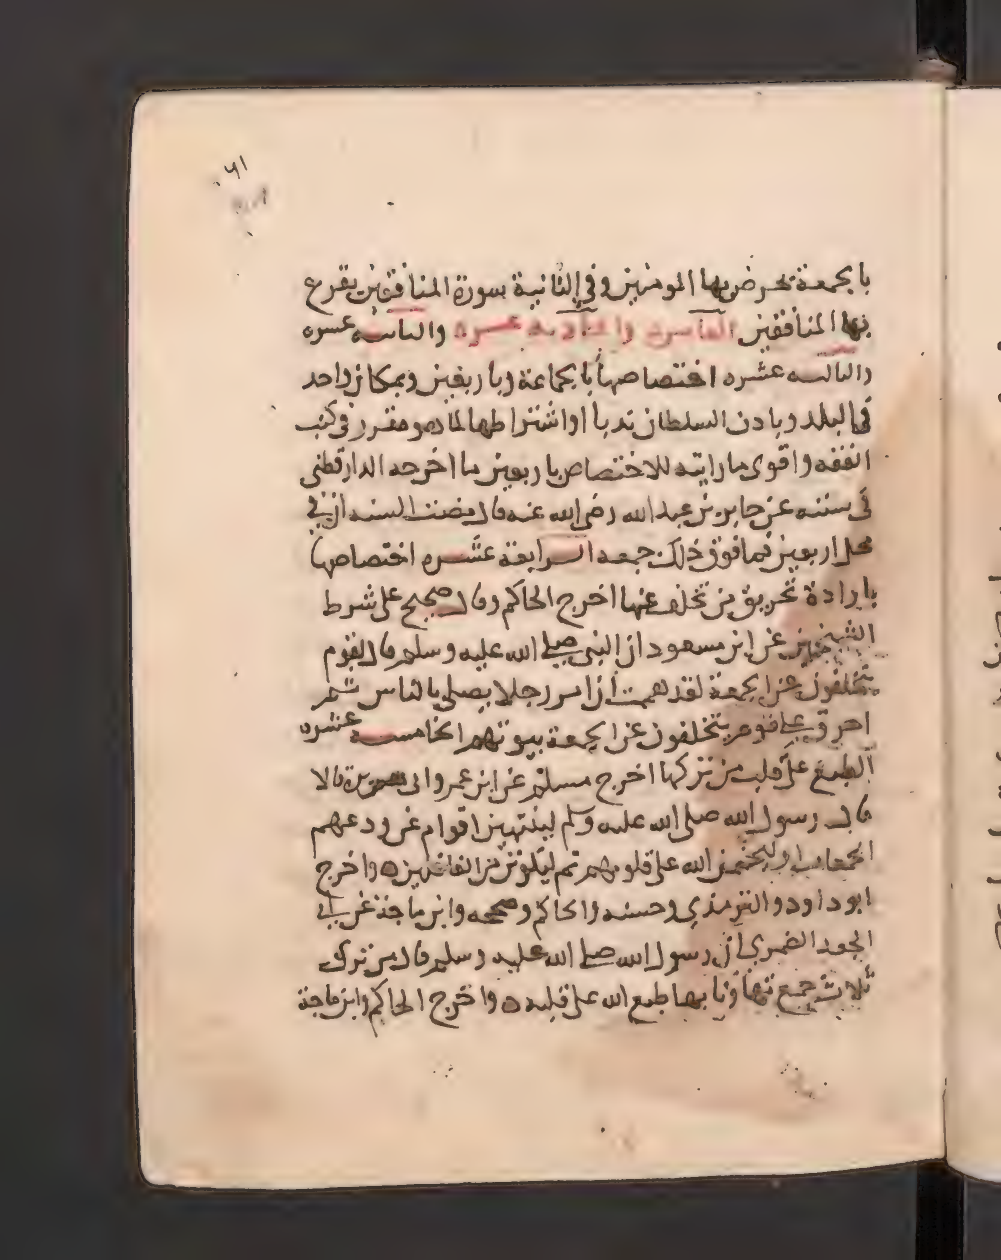 بالجمعة يحرض بها المومنين وفي الثانية بسورة المنافقين يقرع
بها المنافقين العاشرة والحادية عشره والثانيه عشره
والثالثه عشره اختصاصها بالجماعة وباربعين وبمكان واحد
في البلد وباذن السلطان ندبا او اشتراطها لما هو مقرر في كتب
الفقه واقوى ما رايته للاختصاص باربعين ما اخرجه الدارقطني
في سننه عن جابر بن عبد الله رضي الله عنه قال مضت السنه ان في
كل اربعين فما فوق ذلك جمعه الرابعة عشره اختصاصها
بارادة تحريق من تخلف عنها اخرج الحاكم وقال صحيح على شرط
الشيخين عن ابن مسعود ان النبي صلى الله عليه وسلم قال لقوم
يتخلفون عن الجمعة لقد هممت ان امر رجلا يصلي بالناس ثم
احرق على قوم يتخلفون عن الجمعة بيوتهم الخامسه عشره
الطبع على قلب من تركها اخرج مسلم عن ابن عمر وابى هريرة قالا
قال رسول الله صلى الله عليه وسلم لينتهين اقوام عن ودعهم
الجمعات او ليختمن الله على قلوبهم ثم ليكونن من الغافلين ه واخرج
ابو داود والترمذي وحسنه والحاكم وصححه وابن ماجة عن ابي
الجعد الضمري ان رسول الله صلى الله عليه وسلم قال من ترك
ثلاث جمع تهاونا بها طبع الله على قلبه ه واخرج الحاكم وابن ماجة